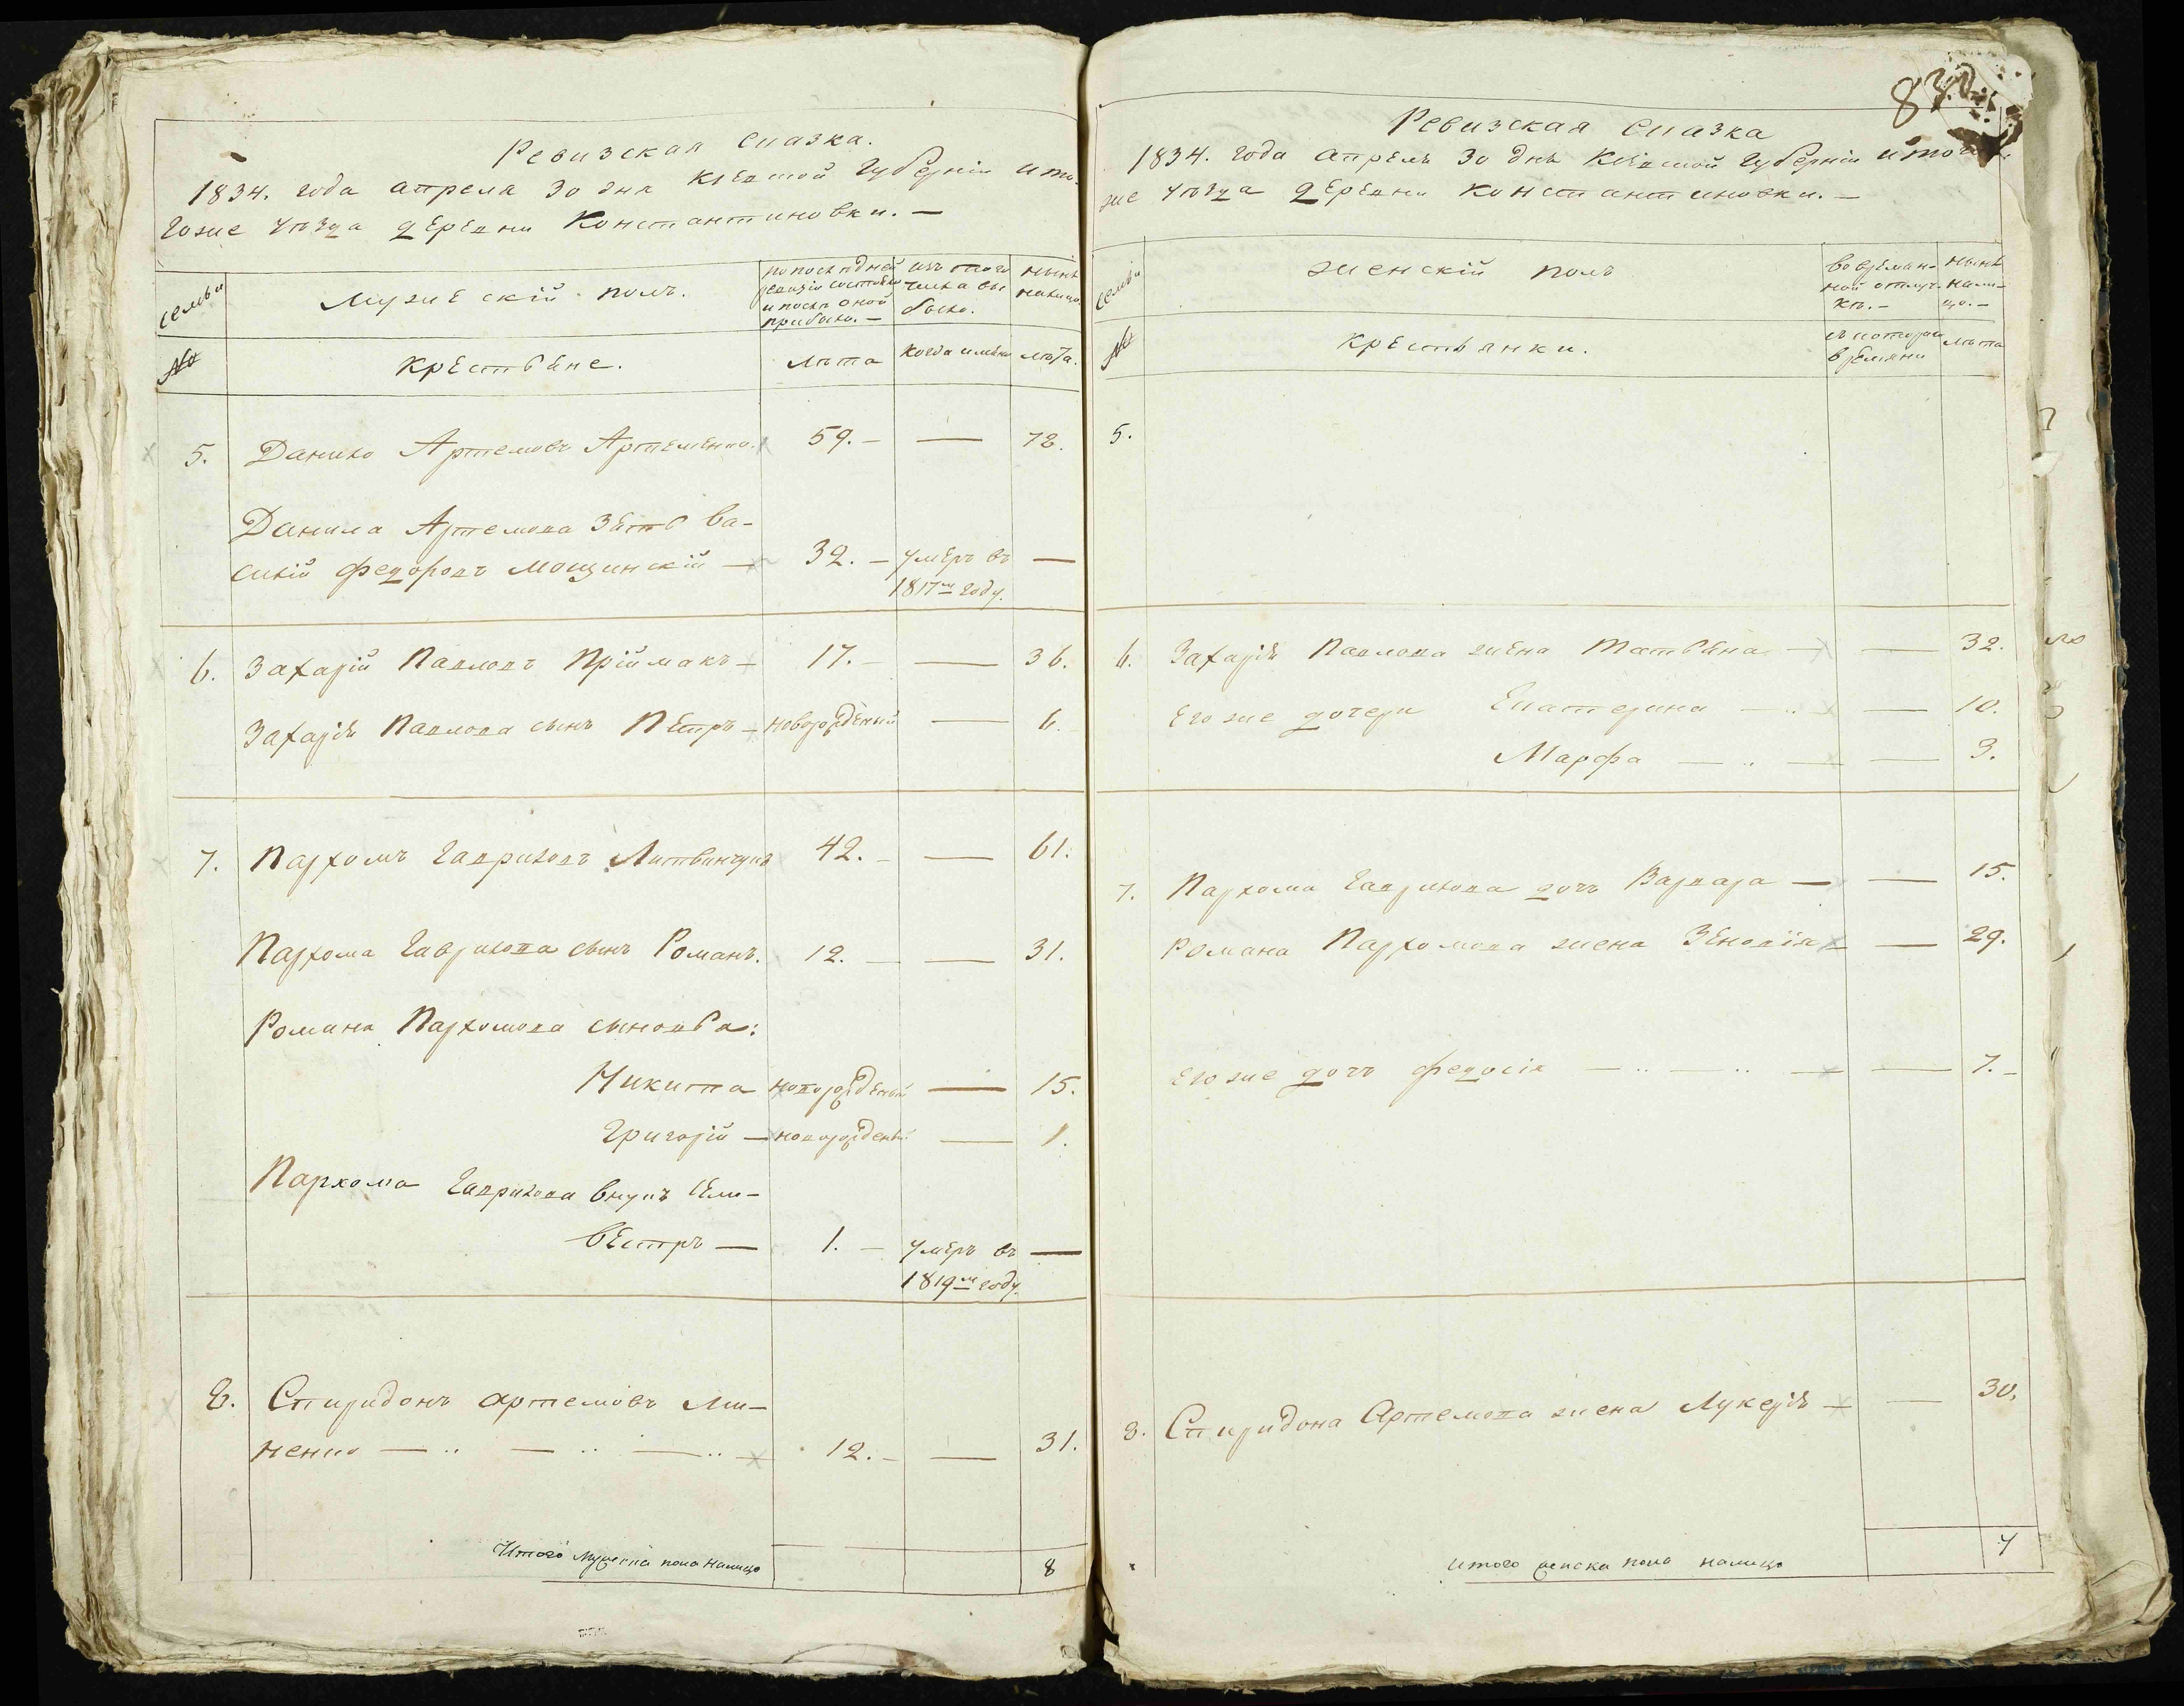 Ревизская сказка.
1834. года апреля 30 дня Кіевской Губерніи и того
гоже уѣзда деревни Константиновки. —
семьи
Мужескій полъ.
по последней
ревизіи состояло
и послѣ оной
прибыло. —
изъ того
числа вы
было.
нынѣ
налицо.
№
Крестьяне.
лѣта
когда имено
лѣта.
5. Данило Артемовъ Артеменко. 59. — — 78.
Данила Артемова зять Ва-
силій Федоровъ Мощинскій — 32. — умеръ въ —
1817м году.
6. Захарій Павловъ Пріймакъ — 17. — — 36.
Захарія Павлова сынъ Петръ — новорожденый — 6.
7. Пархомъ Гавриловъ Литвинчукъ 42. — — 61.
Пархома Гаврилова сынъ Романъ. 12. — — 31.
Романа Пархомова сыновья:
Никита новорожденый — 15.
Григорій — новорожденый — 1.
Пархома Гаврилова внукъ Сели-
вестръ — 1. — умеръ въ —
1819м году.
8. Спиридонъ Артемовъ Ми-
ненко — .. — .. — .. — 12. — — 31.
Итого мужеска пола налицо 8
830
Ревизская сказка
1834. года апрель 30 дня Кіевской Губерніи и того
же уѣзда деревни Константиновки. —
семьи
женскій полъ
во времян-
ной отлуч-
кѣ. —
нынѣ
нали-
цо. —
№
Крестьянки.
съ котораго
времяни
лѣта
5.
6. Захарія Павлова жена Татьяна — — 32.
Его же дочери Екатерина — .. — — 10.
Марфа — .. — — 3.
7. Пархома Гаврилова дочь Варвара — — 15.
Романа Пархомова жена Зеновія — — 29.
Его же дочь Федосія — .. — .. — — 7. —
8. Спиридона Артемова жена Лукерія — — 30.
итого женска пола налицо 7